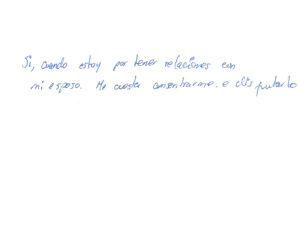 Si, cuando estoy por tener relaciones con
mi esposo. Me cuesta consentrarme. e disfrutarlo